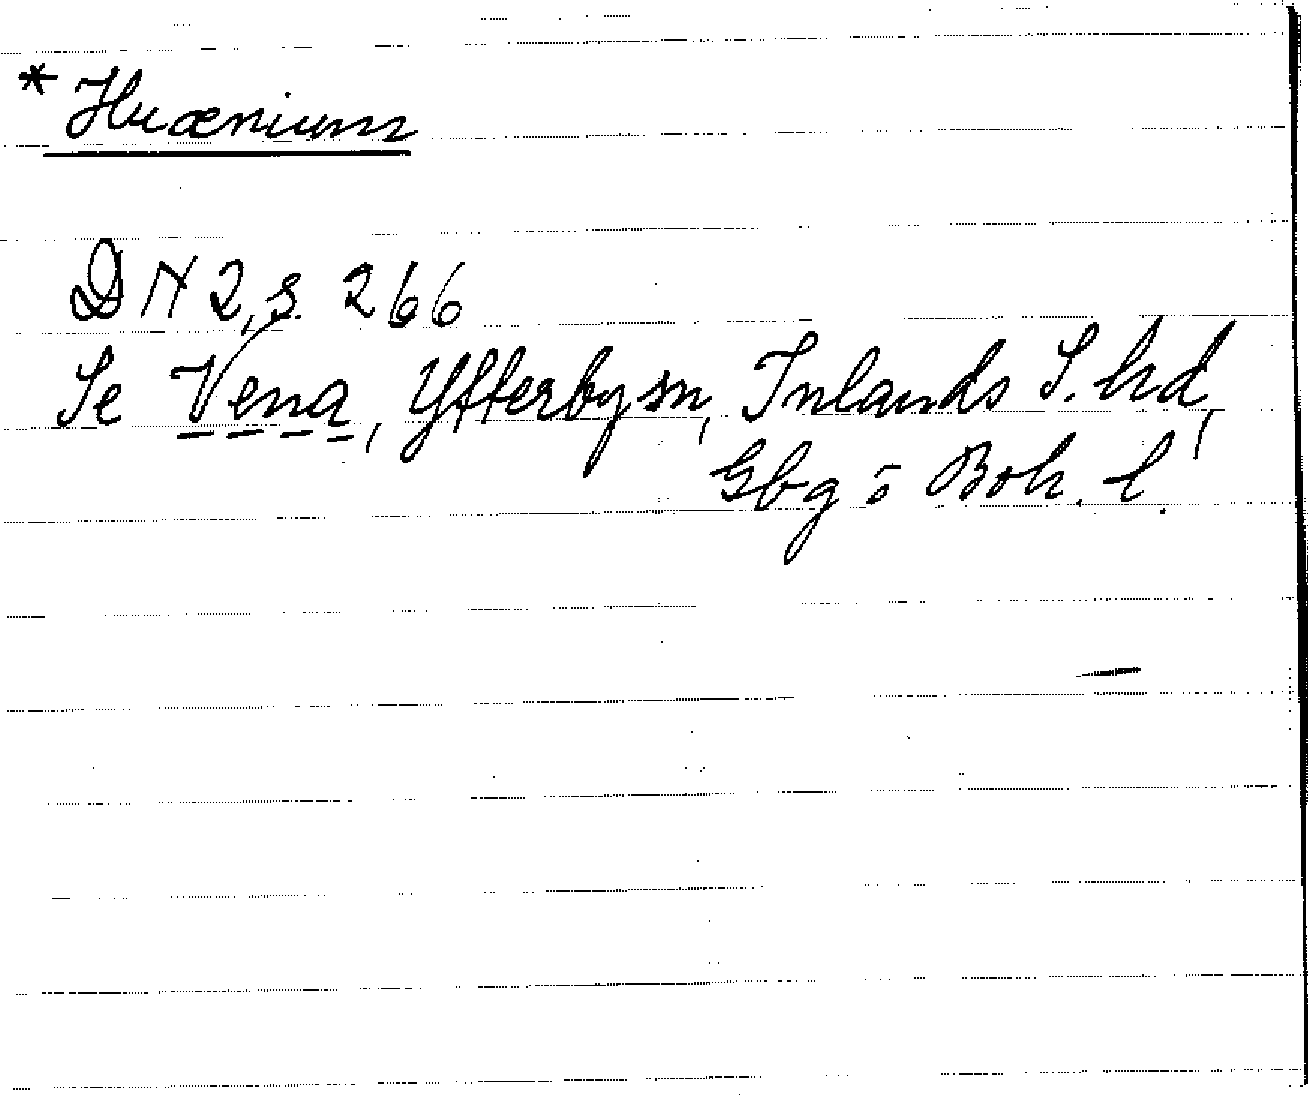 * Huænium
DN 2, s. 266
Se Vena, Ytterby sn, Inlands S. hd,
Gbg o Boh. l.